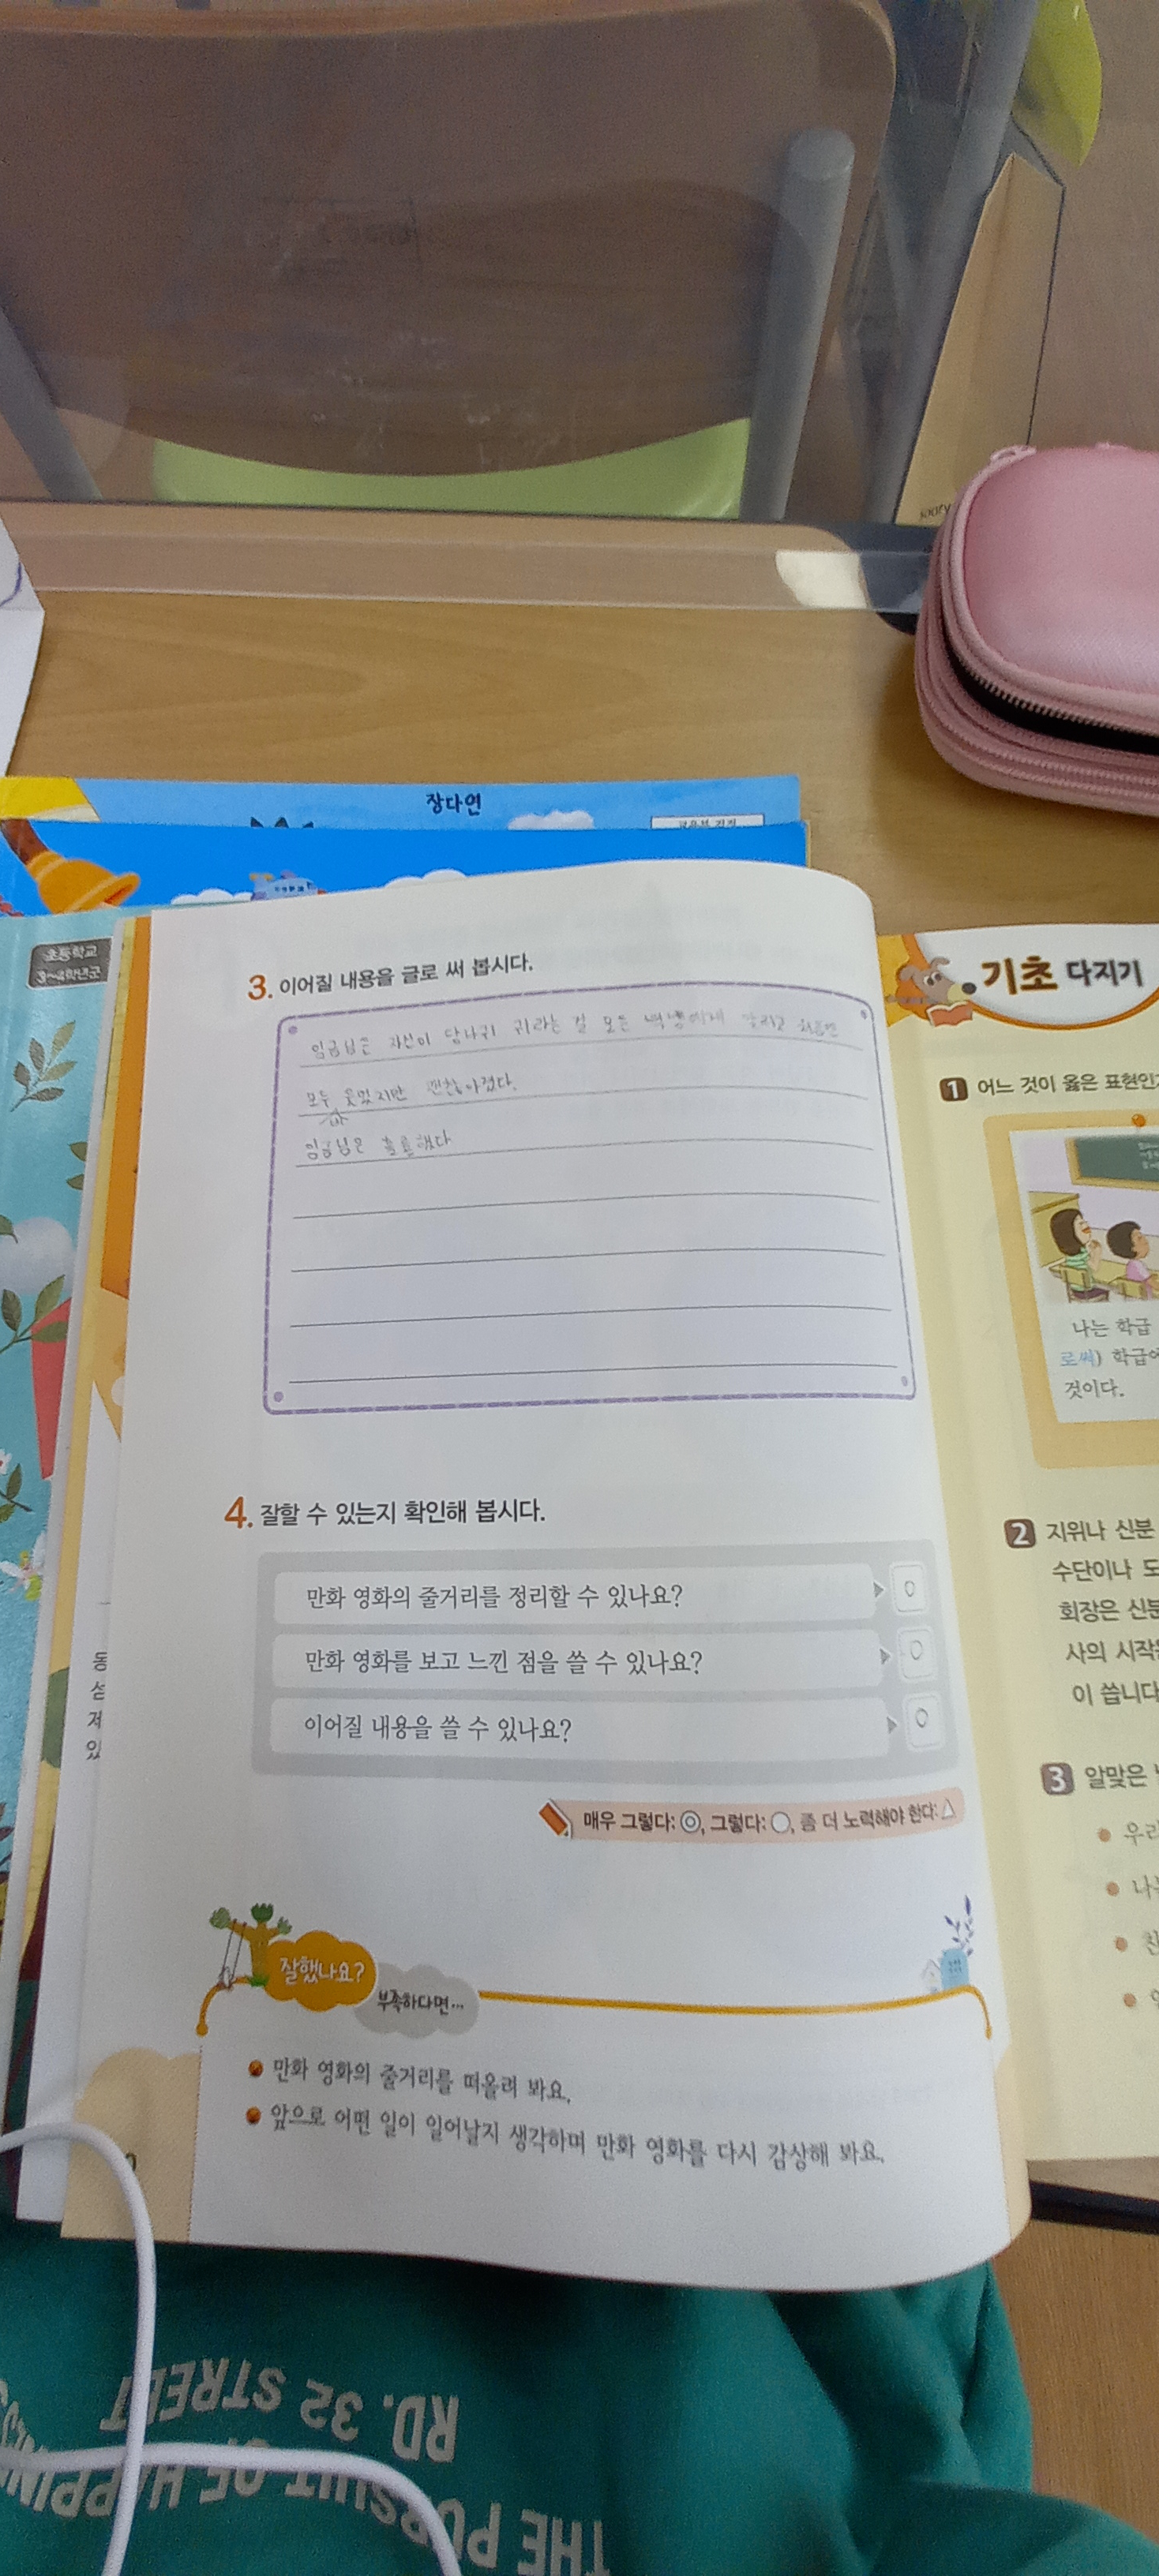 장다연
초등학교
3~4학년군
3. 이어질 내용을 글로 써 봅시다.
임금님은 자신이 당나귀 귀라는 걸 모든 에게 처음엔
모두 웃었지만 괜찮아졌다.
임금님은 훌륭했다
4. 잘할 수 있는지 확인해 봅시다.
만화 영화의 줄거리를 정리할 수 있나요? ○
만화 영화를 보고 느낀 점을 쓸 수 있나요? ○
이어질 내용을 쓸 수 있나요? ○
매우 그렇다: ◎, 그렇다: ○, 좀 더 노력해야 한다: △
잘했나요?
부족하다면...
만화 영화의 줄거리를 떠올려 봐요.
앞으로 어떤 일이 일어날지 생각하며 만화 영화를 다시 감상해 봐요.
기초 다지기
1 어느 것이 옳은 표현인
나는 학급
로써) 학급
것이다.
2 지위나 신분
수단이나 도
회장은 신분
사의 시작
이 씁니다
3 알맞은
우리
나
친
동
섬
저
있
RD. 32 STREET
THE PURSUIT OF HAPPIN